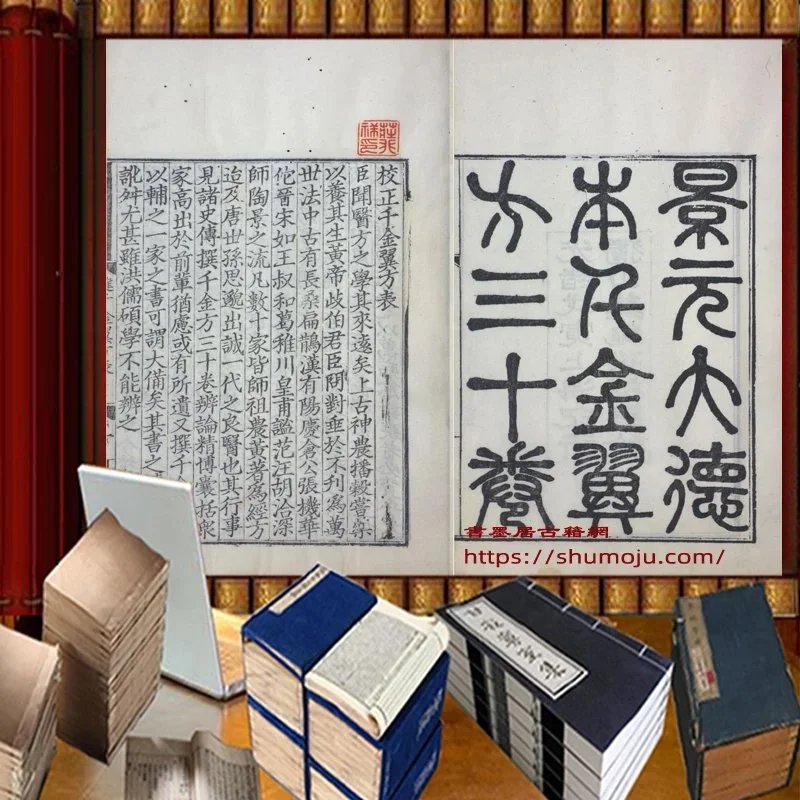 景元大德
本千金翼
方三十卷
校正千金翼方表
臣聞醫方之學其來遠矣上古神農播穀嘗藥
以養其生黃帝歧伯君臣問對垂於不刊為萬
世法中古有長桑扁鵲漢有陽慶倉公張機華
佗晉宋如王叔和葛稚川皇甫謐范汪胡洽深
師陶景之流凡數十家皆師祖農黃著為經方
迨及唐世孫思邈出誠一代之良醫也其行事
見諸史傳撰千金方三十卷辨論精博囊括眾
家高出於前輩猶慮或有所遺又撰千
以輔之一家之書可謂大備矣其書之
訛舛尤甚雖洪儒碩學不能辨之
書墨居古籍網
https://shumoju.com/